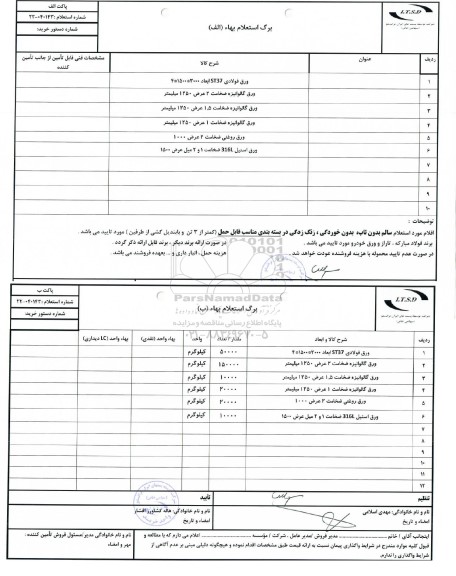 پاکت الف
شماره استعلام: ۲۳۰۰۴۰۱۴۳۰
شماره دستور خرید:
برگ استعلام بهاء (الف)
I.T.S.D
ردیف
عنوان
شرح کالا
مشخصات فنی قابل تأمین از جانب تأمین کننده
۱ ورق فولادی ST37 ابعاد ۲۰۰۰*۱۵۰۰*۴
۲ ورق گالوانیزه ضخامت ۲ عرض ۱۲۵۰ میلیمتر
۳ ورق گالوانیزه ضخامت ۱.۵ عرض ۱۲۵۰ میلیمتر
۴ ورق گالوانیزه ضخامت ۱ عرض ۱۲۵۰ میلیمتر
۵ ورق روغنی ضخامت ۲ عرض ۱۰۰۰
۶ ورق استیل 316L ضخامت ۱ و ۲ میل عرض ۱۵۰۰
۷
۸
۹
۱۰
توضیحات :
اقلام مورد استعلام سالم بدون تاب، بدون خوردگی ، زنگ زدگی در بسته بندی مناسب قابل حمل (کمتر از ۳ تن و باسندیل کشی از طرفین ) مورد تایید می باشد .
برند فولاد مبارکه ، تاراز و ورق خودرو مورد تایید می باشد . در صورت ارائه برند دیگر ، برند قابل ارائه ذکر گردد .
در صورت عدم تایید محموله با هزینه فروشنده عودت خواهد شد . هزینه حمل ، انبار داری و ... بعهده فروشنده می باشد .
پاکت ب
شماره استعلام: ۲۳۰۰۴۰۱۴۳۰
شماره دستور خرید:
برگ استعلام بهاء (ب)
I.T.S.D
ParsNamadData
پایگاه اطلاع رسانی مناقصه و مزایده
۰۲۱-۸۸۳۴۹۶۷۰-۵
ردیف
شرح کالا و ابعاد
مقدار / تعداد
واحد
بهاء واحد (نقدی)
بهاء واحد (LC دیداری)
۱ ورق فولادی ST37 ابعاد ۲۰۰۰*۱۵۰۰*۴ ۵۰۰۰۰ کیلوگرم
۲ ورق گالوانیزه ضخامت ۲ عرض ۱۲۵۰ میلیمتر ۱۵۰۰۰۰ کیلوگرم
۳ ورق گالوانیزه ضخامت ۱.۵ عرض ۱۲۵۰ میلیمتر ۱۰۰۰۰ کیلوگرم
۴ ورق گالوانیزه ضخامت ۱ عرض ۱۲۵۰ میلیمتر ۲۰۰۰۰ کیلوگرم
۵ ورق روغنی ضخامت ۲ عرض ۱۰۰۰ ۲۰۰۰۰ کیلوگرم
۶ ورق استیل 316L ضخامت ۱ و ۲ میل عرض ۱۵۰۰ ۱۰۰۰۰ کیلوگرم
۷
۸
۹
۱۰
۱۱
۱۲
تنظیم
تایید
نام و نام خانوادگی: مهدی اسلامی
امضاء و تاریخ
نام و نام خانوادگی: هاله کشاورز افشار
امضاء و تاریخ
اینجانب آقای / خانم ........ مدیر فروش /مدیر عامل ، شرکت / مؤسسه ........ اعلام می دارم که با مطالعه و
قبول کلیه موارد مندرج در شرایط واگذاری پیمان نسبت به ارائه قیمت طبق مشخصات اقدام نموده و هیچگونه دلیلی مبنی بر عدم آگاهی از
شرایط واگذاری را ندارم.
نام و نام خانوادگی مدیر/مسئول فروش تأمین کننده :
مهر و امضاء